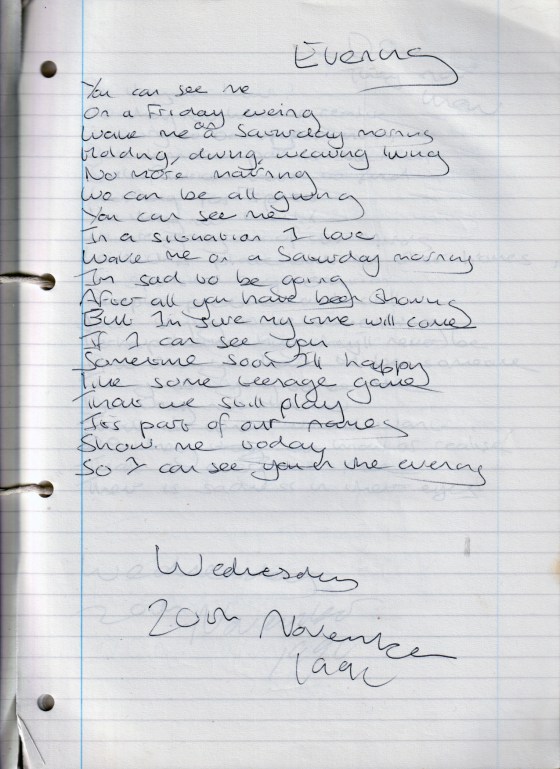 Evening
You can see me
On a Friday eveing
Wake me on a Saturday morning
diving, weaving living
No more
We can be all giving
You can see me
In a situation I love
Wake me on a Saturday morning
Im sad to be going
After all you have been showing
But Im sure my time will come
If I can see you
Sometime soon Ill happy
Like some teenage game
That we still play
Its part of our names
Show me today
So I can see you in the evening
Wednesday
20th November